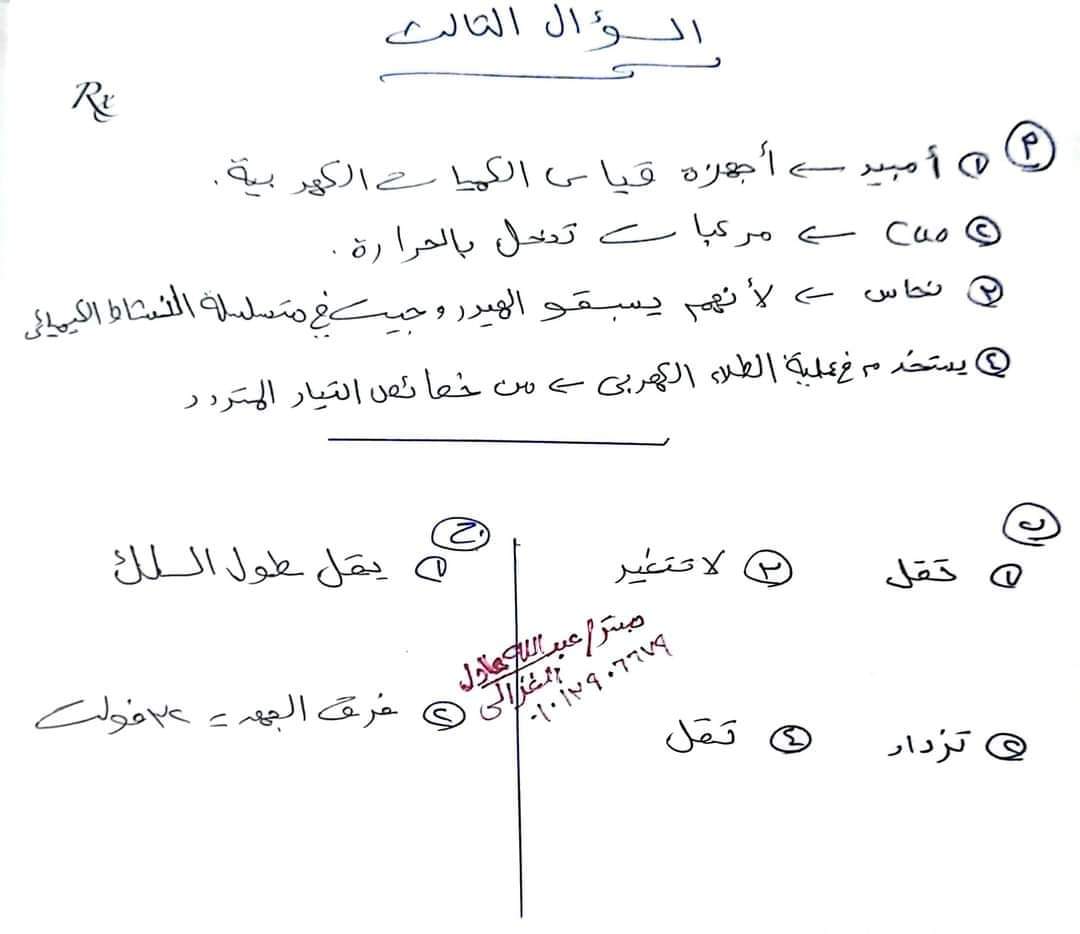 السؤال الثالث
Rx
(أ) (١) أمبير ← أجهزة قياس الكميات الكهربية.
(٢) CuS ← مركبات تنحل بالحرارة.
(٣) نحاس ← لأنهم يسبقو الهيدروجين في متسلسلة النشاط الكيميائي
(٤) يستخدم في عملية الطلاء الكهربي ← من خصائص التيار المتردد
(ب)
(١) تقل
(٣) لا تتغير
(٢) تزداد
(٤) تقل
(ج)
(١) يقل طول السلك
(٢) فرق الجهد = ٢٢ فولت
مستر/ عبدالله عادل
الغزالى